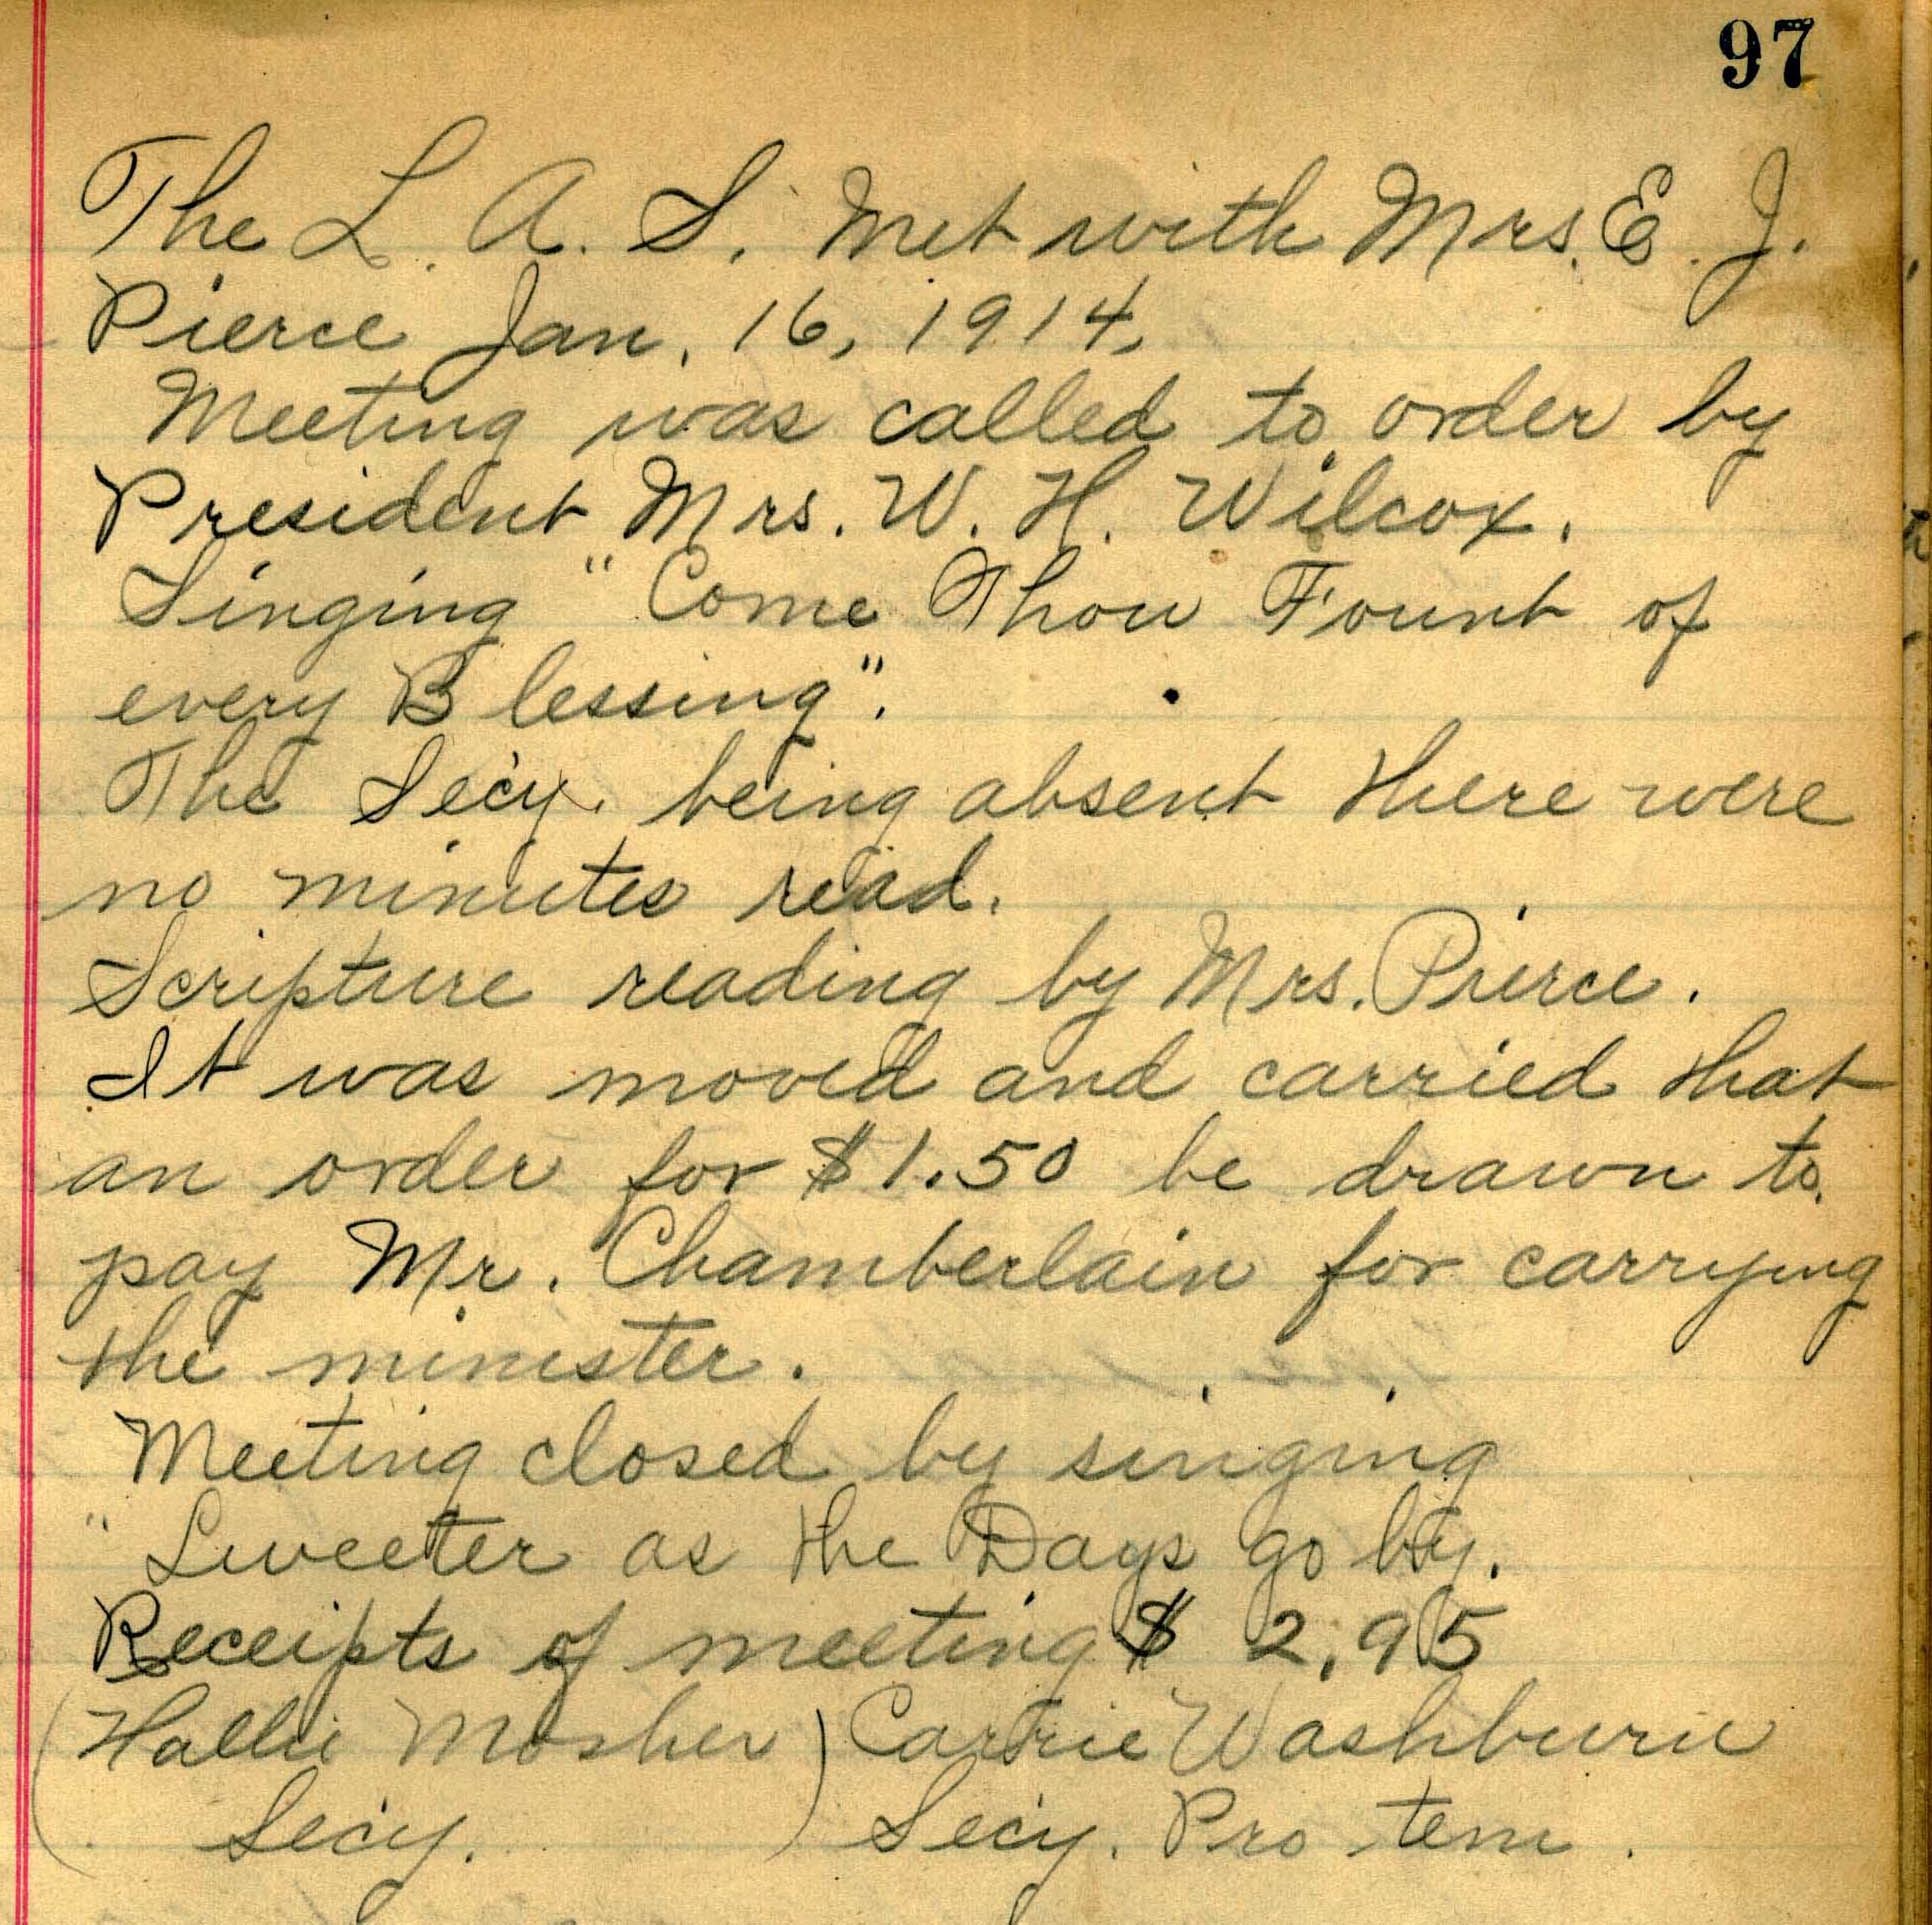 97
The L. A. S. met with Mrs. E. J.
Pierce Jan. 16, 1914.
Meeting was called to order by
President Mrs. W. H. Wilcox.
Singing "Come Thou Fount of
every Blessing".
The Secy. being absent there were
no minutes read.
Scripture reading by Mrs. Pierce.
It was moved and carried that
an order for $1.50 be drawn to
pay Mr. Chamberlain for carrying
the minister.
Meeting closed by singing
"Sweeter as the Days go by.
Receipts of meeting $ 2.95
(Hallie Mosher) Carrie Washburn
Secy. Secy. Pro tem.